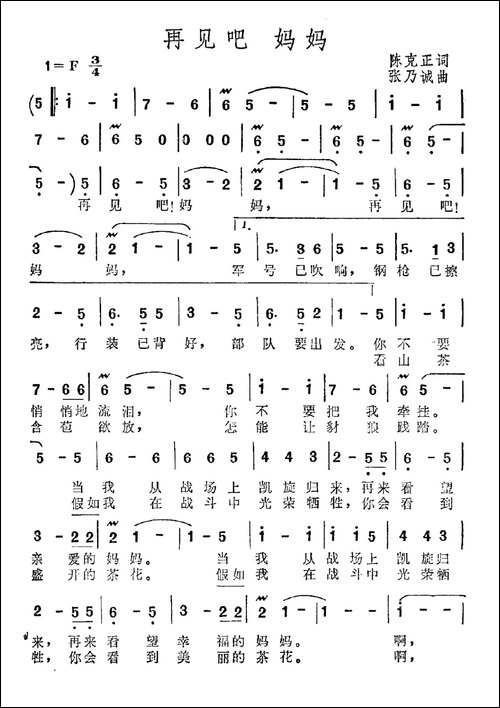 再见吧 妈妈
1=F 3/4
陈克正词
张乃诚曲
(5 ‖: i - i | 7 - 6 | 6 5 - | i - i |
7 - 6 | 6 5 0 | 0 0 0 | 6 5 - | 6 5 - | 6 5 -
5 - ) 5 | 6 - 5 | 5 - 3 | 2 1 - | 1 - 5 | 6 - 5 |
再见吧!妈 妈, 再见吧!
3 - 2 | 2 1 - | 1 - 5 | 5. 3 6 | 5 - 5. | 5. 1 3
1.
妈 妈, 军号已吹响,钢枪已擦
2 - 5 | 6. 5 5 | 3 - 5 | 6. 5 2 | 1 - 5 | i - i
亮,行装已背好,部队要出发。你不要
看山茶
7 - 6 6 | 6 5 - | 5 - 5 | i - i | i - 5 | 6 5 -
悄悄地流泪, 你不要把我牵挂。
含苞欲放, 怎能让豺狼践踏。
5 - 5 | 6 - 5 | 4 4 3 | 6 - 5 | 4 4 3 | 2 - 5 5 | 6 - 5
当我从战场上凯旋归来,再来看望
假如我在战斗中光荣牺牲,你会看到
3 - 2 2 | 2 1 - | 1 - 5 | 6 - 5 | 4 4 3 | 6 - 5 | 4 4 3
亲爱的妈妈。 当我从战场上凯旋归
盛开的茶花。 假如我在战斗中光荣牺
2 - 5 5 | 6 - 5 | 3 - 2 2 | 2 1 - | 1 - 5
来,再来看望幸福的妈妈。 啊,
牲,你会看到美丽的茶花。 啊,